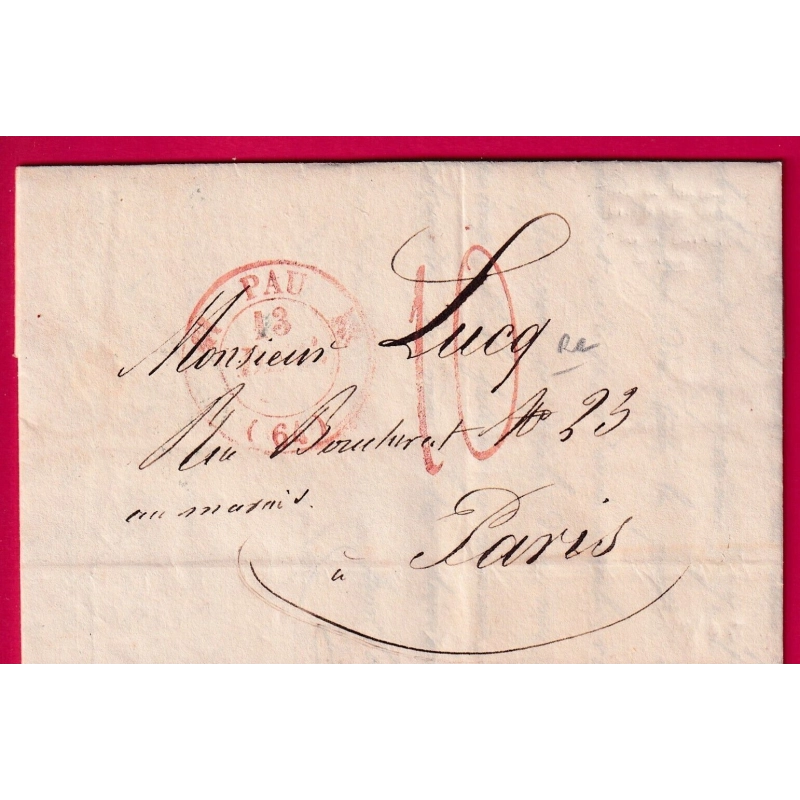 PAU
13
(64)
10
Monsieur Lucq
Rue Boucherat No 23
au marais.
à Paris